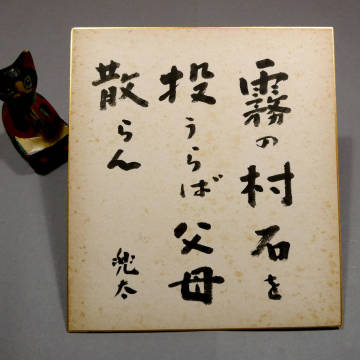 霧の村石を
投うらば父母
散らん
兜太